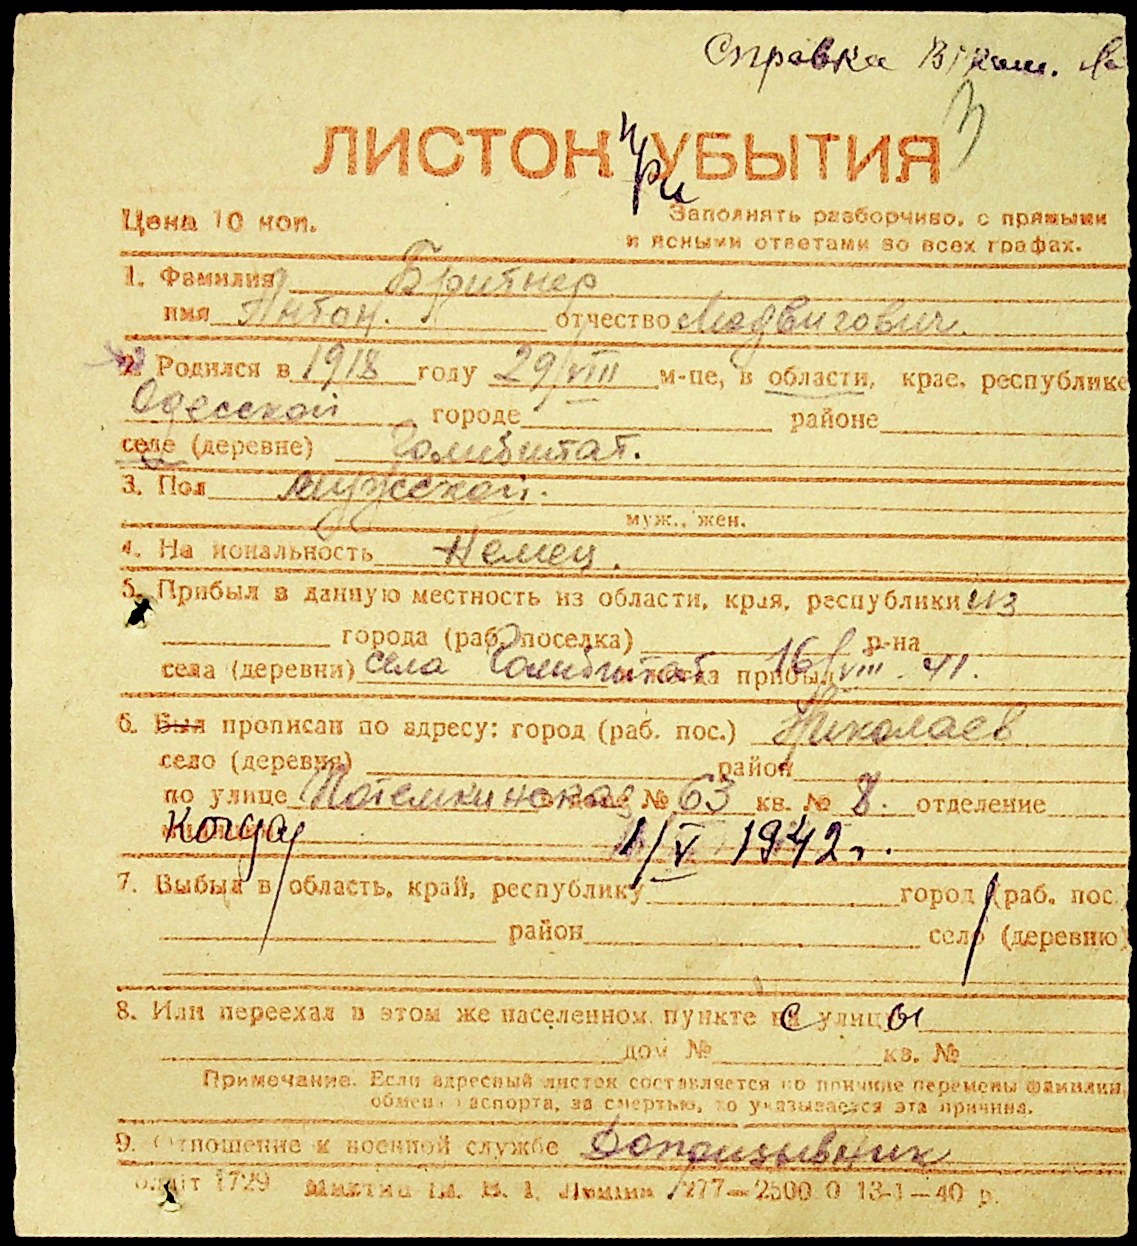 Справка
ЛИСТОК при УБЫТИЯ
Цена 10 коп.
Заполнять разборчиво, с прямыми
и ясными ответами во всех графах.
1. Фамилия Бритнер
имя Антон. отчество Людвигович.
2. Родился в 1918 году 29/VIII м-це, в области, крае, республике
Одесской городе районе
селе (деревне)
3. Пол мужской.
муж., жен.
4. На иональность Немец.
5. Прибыл в данную местность из области, края, республики из
города (раб. поселка) р-на
села (деревни) села когда прибыл 16/VIII. 41.
6. Был прописан по адресу: город (раб. пос.) Николаев
село (деревня) район
по улице Потемкинская дом № 63 кв. № 8. отделение
Когда 1/V 1942 г.
7. Выбыл в область, край, республику город (раб. пос.)
район село (деревню)
8. Или переехал в этом же населенном пункте с улицы
дом № кв. №
Примечание. Если адресный листок составляется по причине перемены фамилии,
обмен паспорта, за смертью, то указывается эта причина.
9. Отношение к военной службе Допризывник
1729 277—2500 0 13-1—40 р.